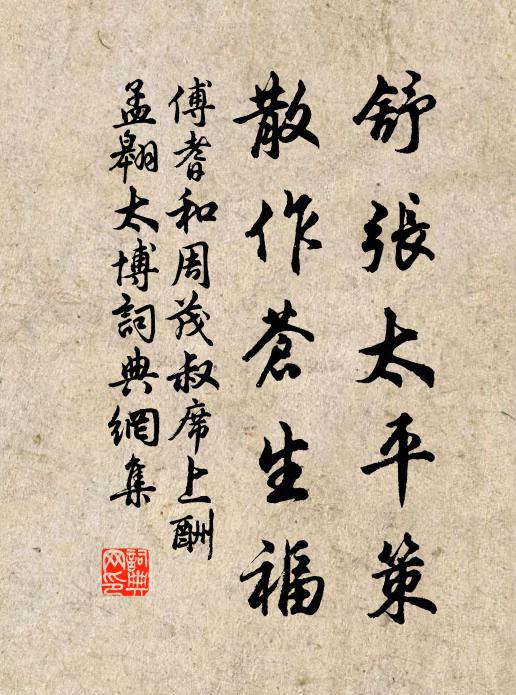 舒張太平策
散作蒼生福
傅耆和周茂叔席上酬
孟翱太博詞典網集
詞典网印